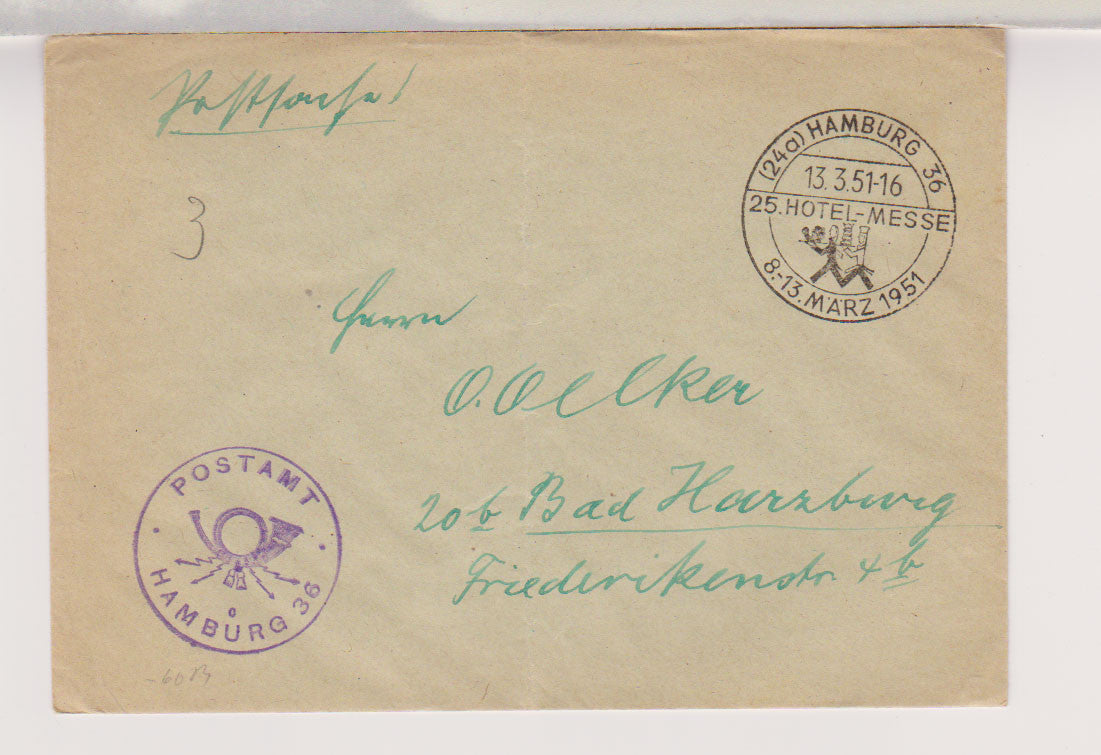 Postsache!
(24a) HAMBURG 36
13.3.51-16
25. HOTEL-MESSE
8.-13. MÄRZ 1951
3
Herrn
O. Oelker
20b Bad Harzburg
Friederikenstr. 4b
POSTAMT
HAMBURG 36